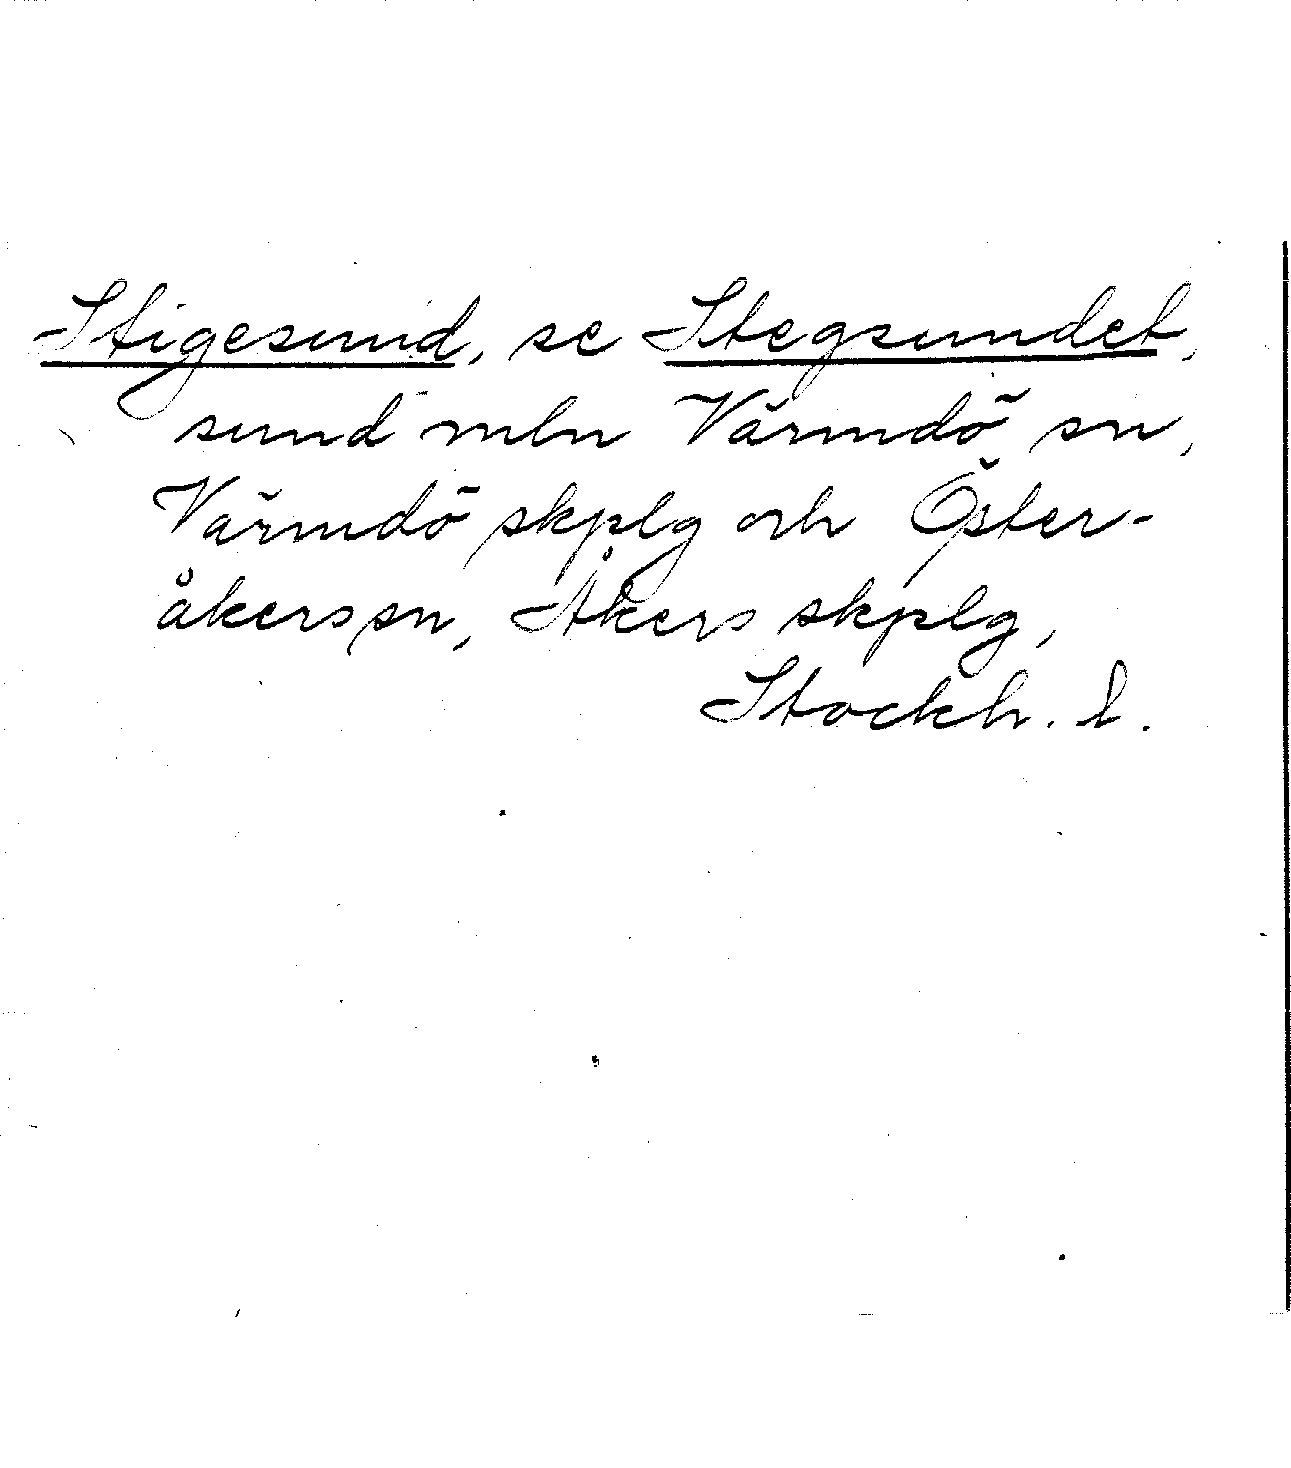 Stigesund, se Stegsundet,
sund mln Värmdö sn,
Värmdö skplg och Öster-
åkers sn, Åkers skplg,
Stockh. l.